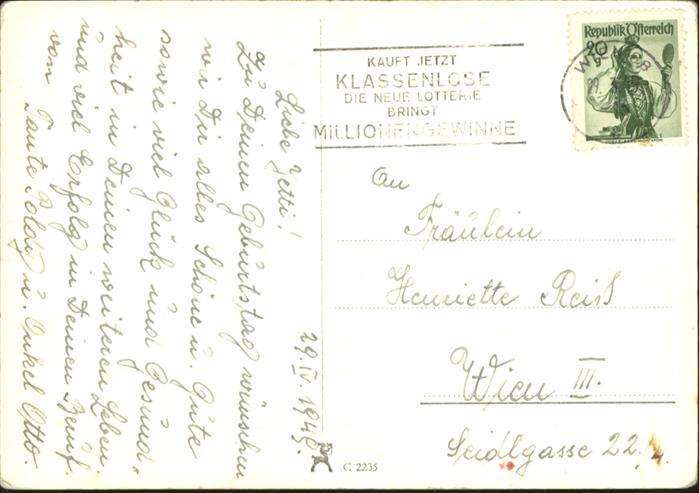 Liebe Jetti!
Zu Deinem Geburtstag wünschen
wir Dir alles Schöne u. Gute
sowie viel Glück und Gesund-
heit in Deinem weiteren Leben
und viel Erfolg in Deinem Beruf.
von Tante Poldy u. Onkel Otto.
29. IV. 1949.
KAUFT JETZT
KLASSENLOSE
DIE NEUE LOTTERIE
BRINGT
MILLIONENGEWINNE
Republik Österreich
20
An
Fräulein
Henriette Reiß
Wien III.
Seidlgasse 22
C 2235